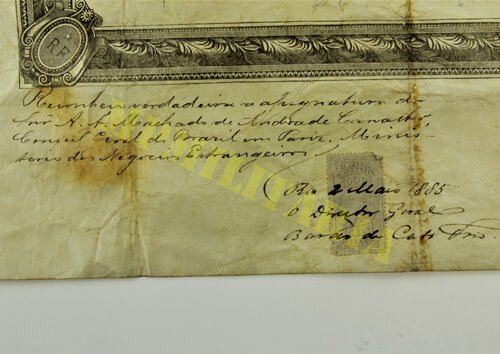 RF
Reconheço verdadeira a assignatura de
Snr A. A. Machado de Andrade Carvalho,
Consul Geral do Brazil em Pariz. Minis-
terio dos Negocios Estrangeiros
Rio 2 Maio 1885
O Director Geral
Barão de Cabo Frio